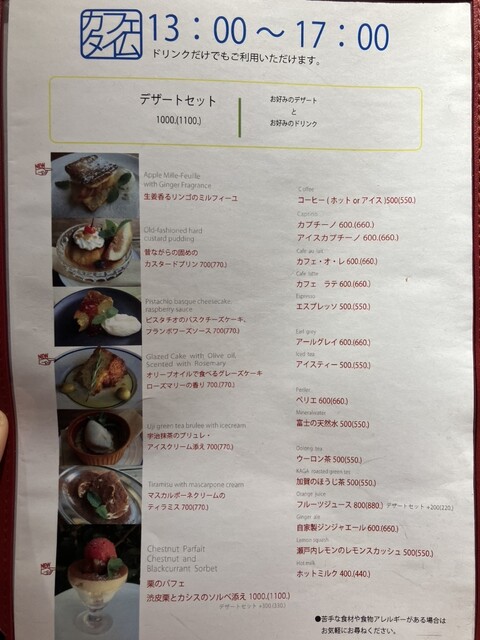 カフェ
タイム
13：00～17：00
ドリンクだけでもご利用いただけます。
デザートセット
1000.(1100.)
お好みのデザート
と
お好みのドリンク
Apple Mille-Feuille
with Ginger Fragrance
生姜香るリンゴのミルフィーユ
Old-fashioned hard
custard pudding
昔ながらの固めの
カスタードプリン 700(770.)
Pistachio basque cheesecake,
raspberry sauce
ピスタチオのバスクチーズケーキ、
フランボワーズソース 700(770.)
Glazed Cake with Olive oil,
Scented with Rosemary
オリーブオイルで食べるグレーズケーキ
ローズマリーの香り 700(770.)
Uji green tea brulee with icecream
宇治抹茶のブリュレ・
アイスクリーム添え 700(770.)
Tiramisu with mascarpone cream
マスカルポーネクリームの
ティラミス 700(770.)
Chestnut Parfait
Chestnut and
Blackcurrant Sorbet
栗のパフェ
渋皮栗とカシスのソルベ添え 1000.(1100.)
デザートセット +300(330.)
Coffee
コーヒー ( ホット or アイス )500(550.)
カプチーノ 600.(660.)
アイスカプチーノ 600.(660.)
Cafe au lait
カフェ・オ・レ 600.(660.)
Cafe latte
カフェ ラテ 600.(660.)
Espresso
エスプレッソ 500.(550.)
Earl grey
アールグレイ 600(660.)
Iced tea
アイスティー 500(550.)
Perrier
ペリエ 600(660.)
Mineralwater
富士の天然水 500(550.)
Oolong tea
ウーロン茶 500(550.)
KAGA roasted green tea
加賀のほうじ茶 500(550.)
Orange juice
フルーツジュース 800(880.) デザートセット +200(220.)
Ginger ale
自家製ジンジャエール 600.(660.)
Lemon squash
瀬戸内レモンのレモンスカッシュ 500(550.)
Hot milk
ホットミルク 400.(440.)
●苦手な食材や食物アレルギーがある場合は
お気軽にお尋ねください。